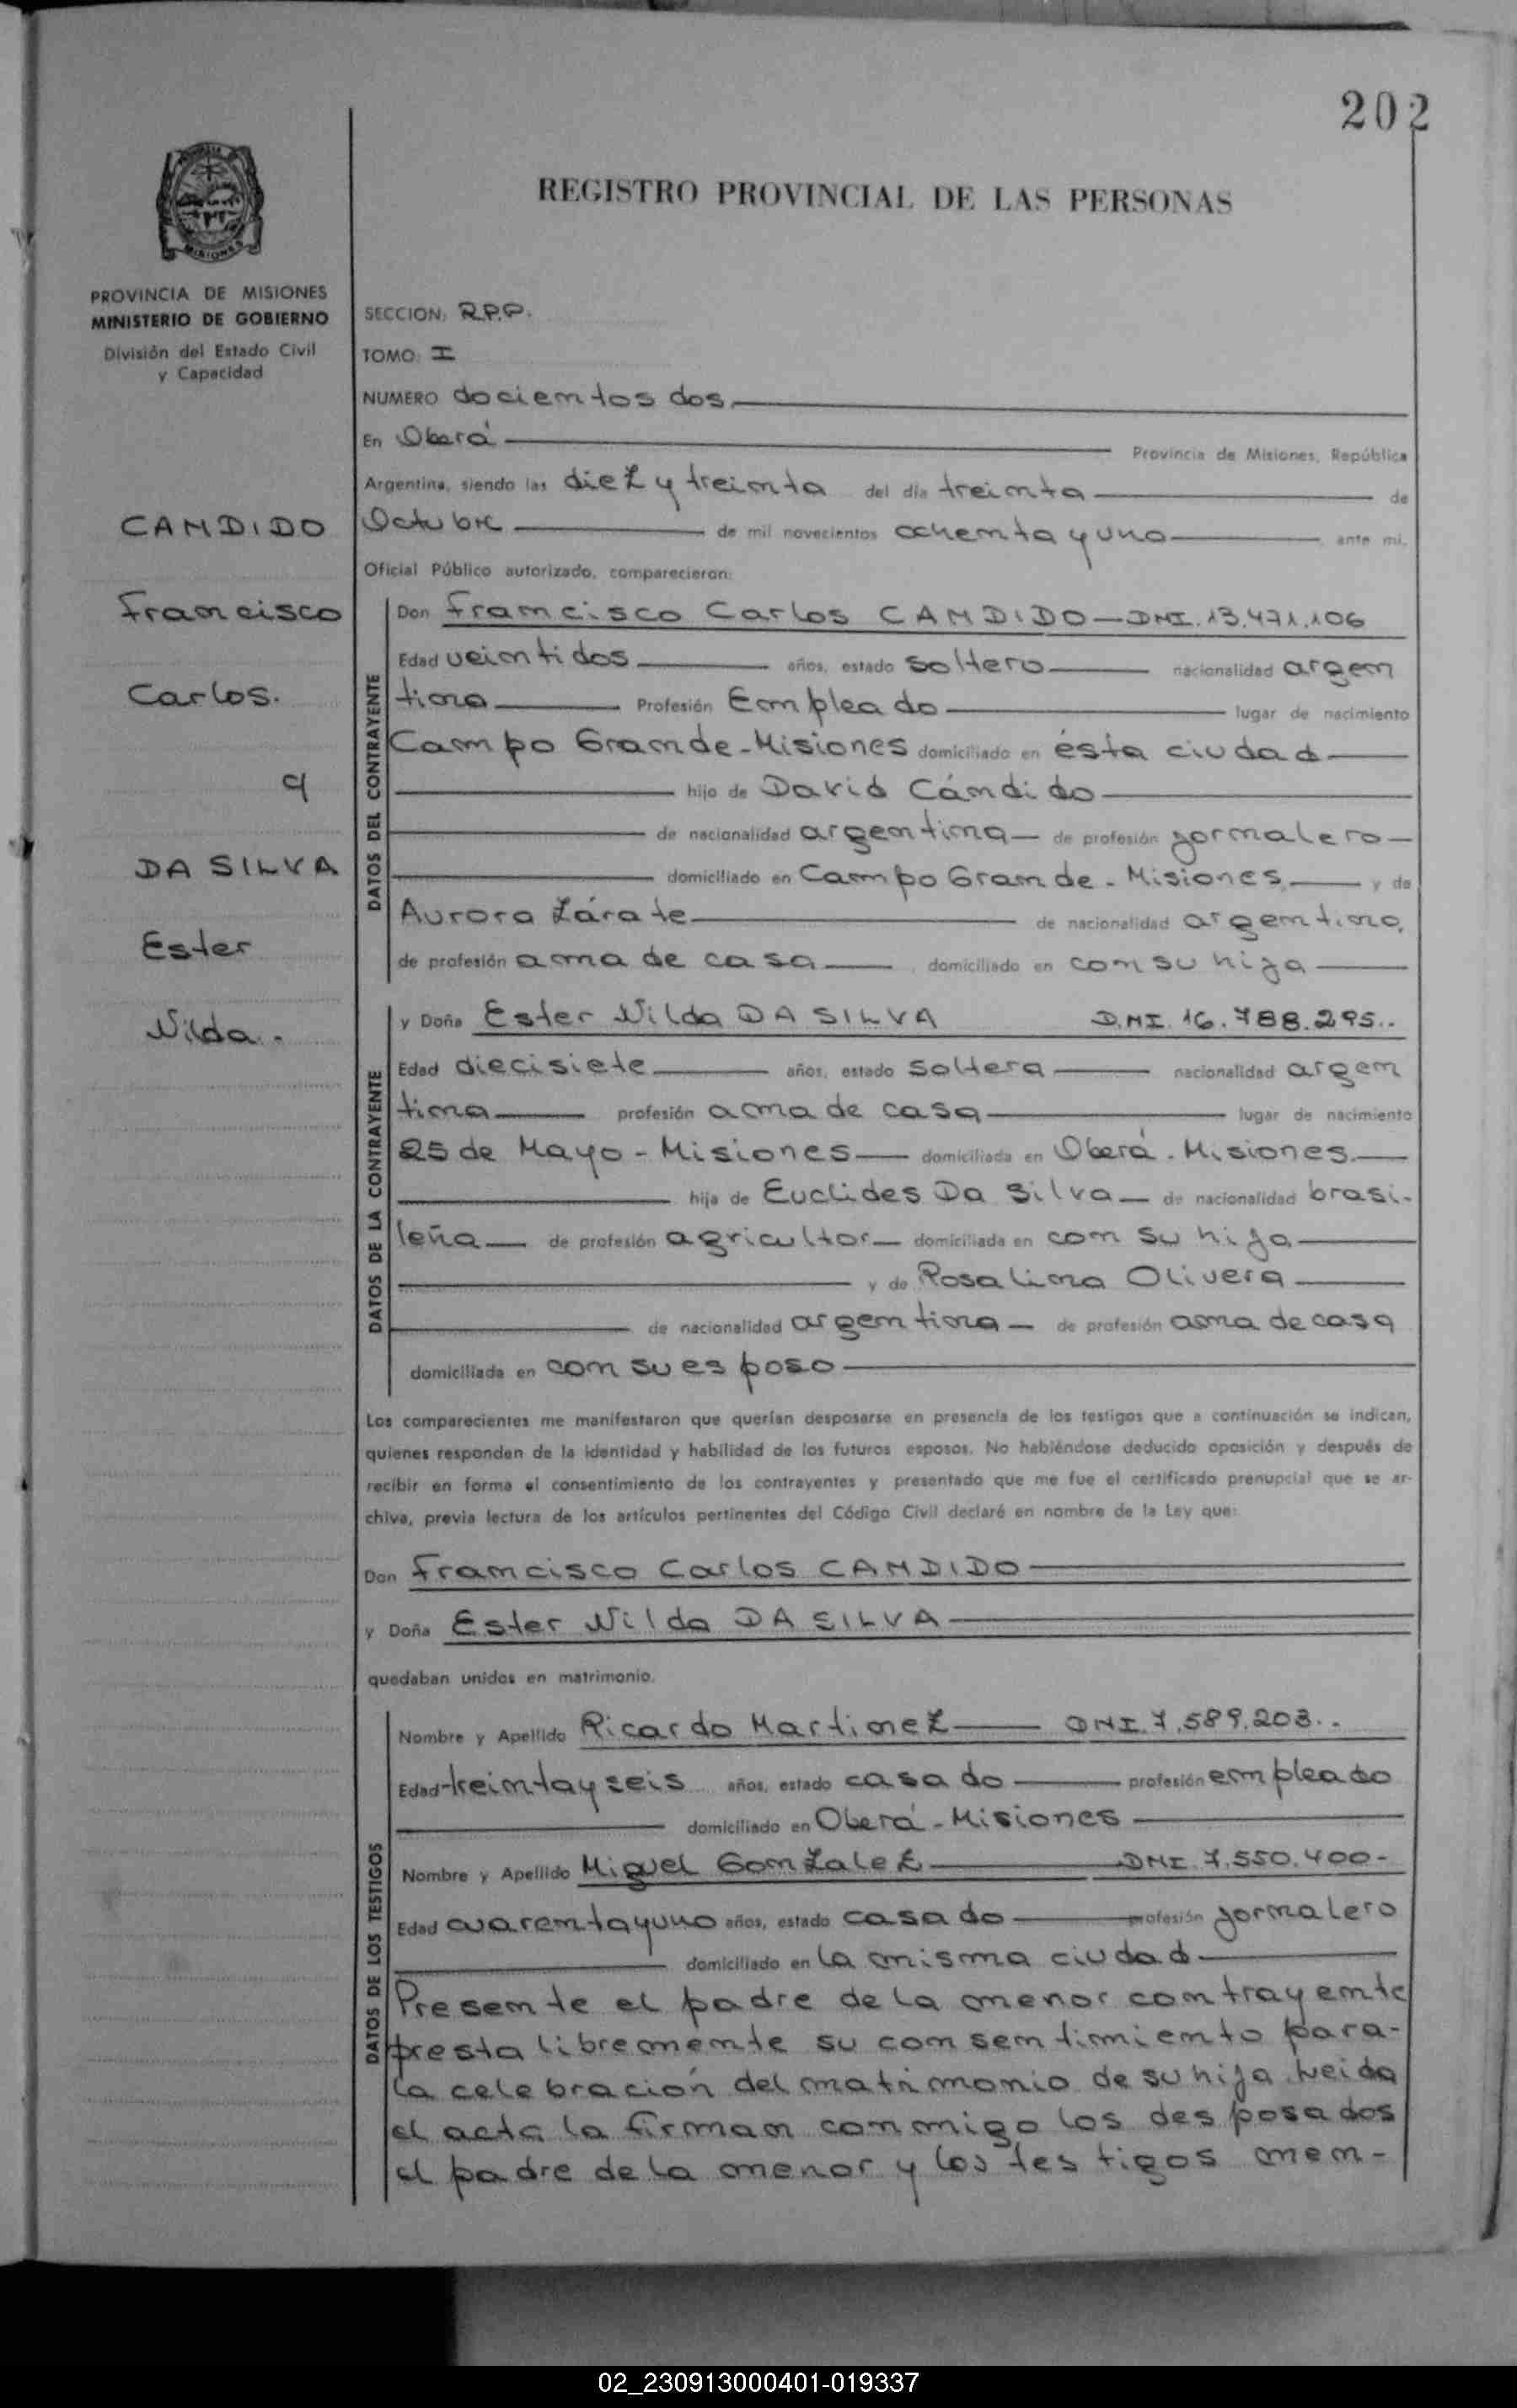 202
REGISTRO PROVINCIAL DE LAS PERSONAS
MISIONES
PROVINCIA DE MISIONES
MINISTERIO DE GOBIERNO
División del Estado Civil
y Capacidad
CANDIDO
Francisco
Carlos.
y
DA SILVA
Ester
Nilda.-
SECCION: R.P.P.
TOMO: I
NUMERO docientos dos.
En Oberá Provincia de Misiones, República
Argentina, siendo las diez y treinta del día treinta de
Octubre de mil novecientos ochenta y uno ante mi,
Oficial Público autorizado, comparecieron:
DATOS DEL CONTRAYENTE
Don Francisco Carlos CANDIDO—DNI.13.471.106
Edad veintidos años, estado soltero nacionalidad argen
tina Profesión Empleado lugar de nacimiento
Campo Grande-Misiones domiciliado en ésta ciudad
hijo de David Cándido
de nacionalidad argentina— de profesión jornalero—
domiciliado en Campo Grande-Misiones, y de
Aurora Zárate de nacionalidad argentina,
de profesión ama de casa , domiciliado en con su hija
DATOS DE LA CONTRAYENTE
y Doña Ester Nilda DA SILVA D.NI.16.788.295..
Edad diecisiete años, estado soltera nacionalidad argen
tina profesión ama de casa lugar de nacimiento
25 de Mayo-Misiones domiciliada en Oberá-Misiones.
hija de Euclides Da Silva— de nacionalidad brasi-
leña— de profesión agricultor— domiciliada en con su hija
y de Rosalina Olivera
de nacionalidad argentina— de profesión ama de casa
domiciliada en con su esposo
Los comparecientes me manifestaron que querían desposarse en presencia de los testigos que a continuación se indican,
quienes responden de la identidad y habilidad de los futuros esposos. No habiéndose deducido oposición y después de
recibir en forma el consentimiento de los contrayentes y presentado que me fue el certificado prenupcial que se ar-
chiva, previa lectura de los artículos pertinentes del Código Civil declaré en nombre de la Ley que:
Don Francisco Carlos CANDIDO
y Doña Ester Nilda DA SILVA
quedaban unidos en matrimonio.
DATOS DE LOS TESTIGOS
Nombre y Apellido Ricardo Martinez DNI.7.589.203..
Edad treintayseis años, estado casado profesión empleado
domiciliado en Oberá-Misiones
Nombre y Apellido Miguel Gonzalez DNI 7.550.400-
Edad cuarentayuno años, estado casado profesión jornalero
domiciliado en la misma ciudad
Presente el padre de la menor contrayente
presta libremente su consentimiento para-
la celebración del matrimonio de su hija. Leida
el acta la firman conmigo los desposados
el padre de la menor y los testigos men-
02_230913000401-019337